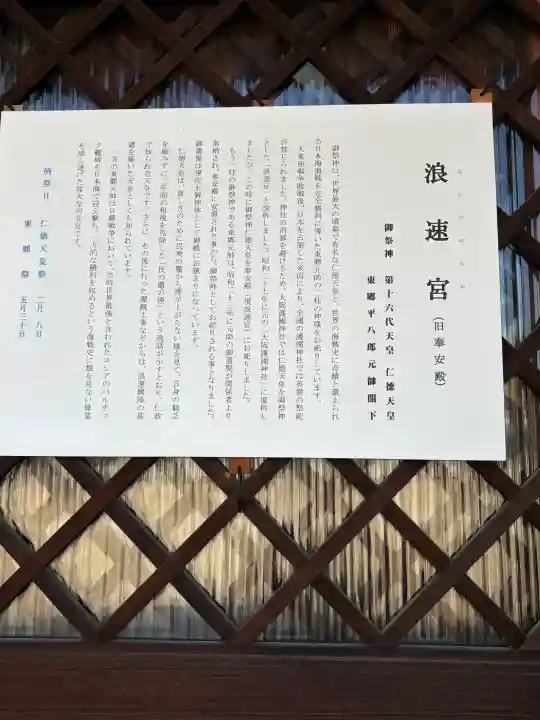 浪速宮（旧奉安殿）
なにわのみや
御祭神　第十六代天皇　仁徳天皇
東郷平八郎元帥閣下
御祭神は、世界最大の墳墓で有名な仁徳天皇と、世界の海戦史に奇蹟と数えられ
る日本海海戦を完全勝利に導いた東郷元帥の二柱の神様をお祀りしています。
大東亜戦争敗戦後、日本を占領した米国により、全国の護國神社では英霊の祭祀
が禁じられました。神社の消滅を避けるため、大阪護國神社では仁徳天皇を御祭神
とした「浪速宮」と改称しました。昭和二十七年に元の「大阪護國神社」に復称し
ましたが、この時に御祭神仁徳天皇を奉安殿（現浪速宮）にお祀りしました。
もう一柱の御祭神である東郷元帥は、昭和二十三年に元帥の御遺髪が関係者より
奉納され、奉安殿に安置された事から、御祭神としてお祀りされる事となりました。
御遺髪は現在も御神体として御殿にお鎮まりになっています。
仁徳天皇は、貧しさのために民衆の竈から煙が上がらない様を見て、自身の窮乏
を顧みずに三年間の租税を免除した「民の竈の煙」という逸話が示すとおり、仁政
で知られる天皇です。さらに、その後に行った灌漑工事などからは、浪速興隆の基
礎を築いた天皇としても知られています。
一方の東郷元帥は日露戦争において、当時世界最強を言われたロシアのバルチッ
ク艦隊を日本海で迎え撃ち、一方的な勝利を収めるという海戦史に類を見ない偉業
を成し遂げた偉大な司令官です。
例祭日　仁徳天皇祭　二月八日
東郷祭　五月三十日